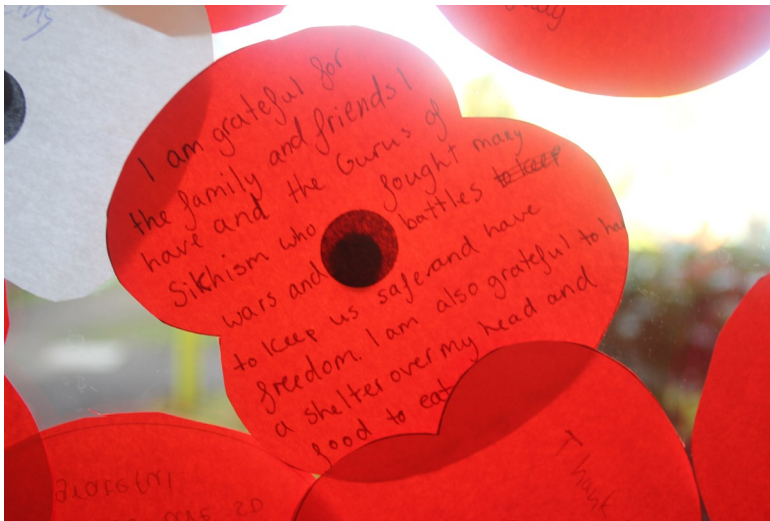 I am grateful for
the family and friends I
have and the Gurus of
Sikhism who fought many
wars and battles to keep
to keep us safe and have
freedom. I am also grateful to ha
a shelter over my head and
food to eat
Thank